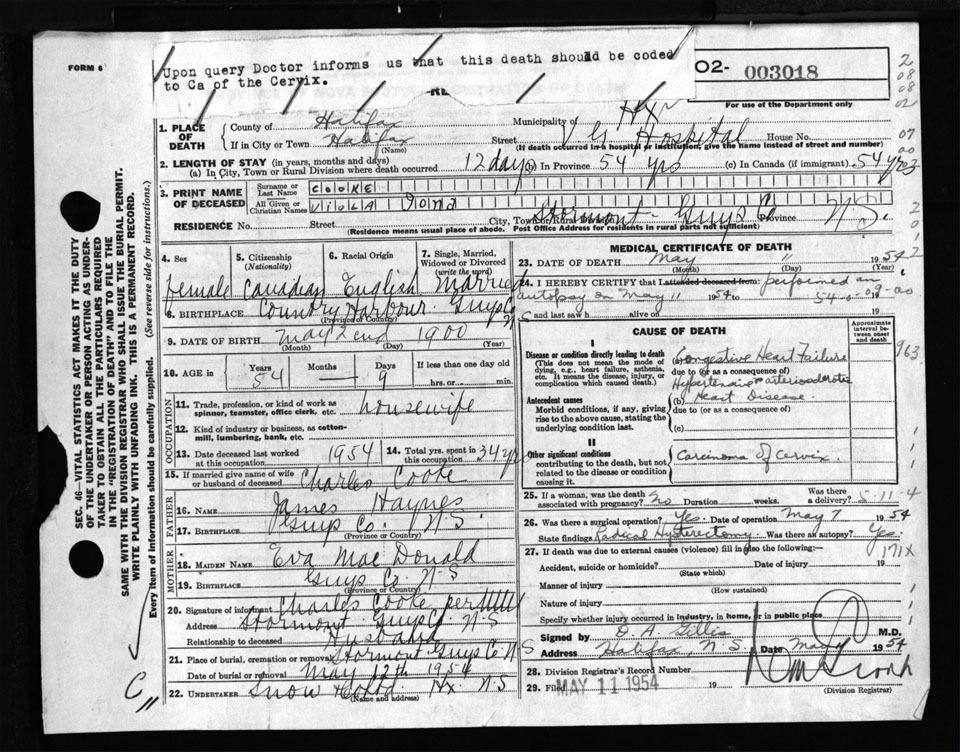 FORM 6
Upon query Doctor informs us that this death should be coded
to Ca of the Cervix.
02- 003018
For use of the Department only
1. PLACE OF DEATH { County of Halifax Municipality of Hx
If in City or Town Halifax (Name) Street V G Hospital House No.
(If death occurred in a hospital or institution, give the name instead of street and number)
2. LENGTH OF STAY (in years, months and days)
(a) In City, Town or Rural Division where death occurred 12 days (b) In Province 54 yrs (c) In Canada (if immigrant) 54 yrs
3. PRINT NAME OF DECEASED { Surname or Last Name COOKE
All Given or Christian Names VIOLA Iona
RESIDENCE No. Street City, Town or Rural Division Stormont - Guys Co Province N.S.
(Residence means usual place of abode. Post Office Address for residents in rural parts not sufficient)
4. Sex female
5. Citizenship (Nationality) Canadian
6. Racial Origin English
7. Single, Married, Widowed or Divorced (write the word) Married
8. BIRTHPLACE Country Harbour Guys Co NS
(Province or Country)
9. DATE OF BIRTH May 2nd 1900
(Month) (Day) (Year)
10. AGE in { Years 54 Months — Days 9 If less than one day old
hrs. or min.
OCCUPATION
11. Trade, profession, or kind of work as spinner, teamster, office clerk, etc. housewife
12. Kind of industry or business, as cotton-mill, lumbering, bank, etc.
13. Date deceased last worked at this occupation 1954
14. Total yrs. spent in this occupation 34 yrs
15. If married give name of wife or husband of deceased Charles Cooke
FATHER
16. Name James Haynes
17. Birthplace Guys Co. N.S.
(Province or Country)
MOTHER
18. Maiden Name Eva Mac Donald
19. Birthplace Guys Co. N-S
(Province or Country)
20. Signature of informant Charles Cooke per
Address Stormont Guys Co. N-S
Relationship to deceased Husband
21. Place of burial, cremation or removal Stormont Guys Co. N S
Date of burial or removal May 12th 1954
22. UNDERTAKER Snow Hx. N-S
(Name and address)
MEDICAL CERTIFICATE OF DEATH
23. DATE OF DEATH May 11 1954
(Month) (Day) (Year)
24. I HEREBY CERTIFY that I attended deceased from: performed an
autopsy on May 11 1954 to
and last saw h alive on
CAUSE OF DEATH
Approximate interval between onset and death
I
Disease or condition directly leading to death
(This does not mean the mode of dying, e.g., heart failure, asthenia, etc. It means the disease, injury, or complication which caused death.)
Congestive Heart Failure
due to (or as a consequence of)
Antecedent causes
Morbid conditions, if any, giving rise to the above cause, stating the underlying condition last.
(b) Hypertensive arteriosclerotic Heart Disease.
due to (or as a consequence of)
(c)
II
Other significant conditions contributing to the death, but not related to the disease or condition causing it.
Carcinoma of Cervix.
25. If a woman, was the death associated with pregnancy? No Duration weeks. Was there a delivery? 5-11-4
26. Was there a surgical operation? Yes. Date of operation May 7 1954
State findings Radical Hysterectomy Was there an autopsy? Yes
27. If death was due to external causes (violence) fill in also the following:— 171X
Accident, suicide or homicide? (State which) Date of injury 19
Manner of injury (How sustained)
Nature of injury
Specify whether injury occurred in industry, in home, or in public place
Signed by D A. Gillis M.D.
Address Halifax, N.S. Date May 1954
28. Division Registrar's Record Number
29. Filed MAY 11 1954 19
(Division Registrar)
SEC. 46—VITAL STATISTICS ACT MAKES IT THE DUTY
OF THE UNDERTAKER OR PERSON ACTING AS UNDERTAKER TO OBTAIN ALL THE PARTICULARS REQUIRED
IN THE "REGISTRATION OF DEATH" AND TO FILE THE
SAME WITH THE DIVISION REGISTRAR WHO SHALL ISSUE THE BURIAL PERMIT.
WRITE PLAINLY WITH UNFADING INK. THIS IS A PERMANENT RECORD.
Every item of information should be carefully supplied. (See reverse side for instructions.)